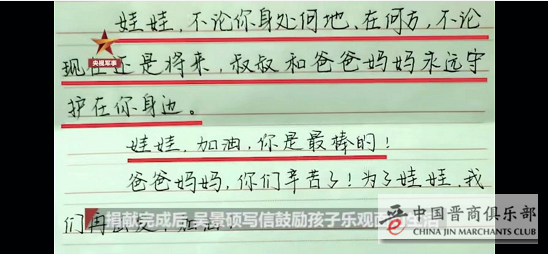 娃娃，不论你身处何地、在何方，不论
央视军事
现在还是将来，叔叔和爸爸妈妈永远守
护在你身边。
娃娃，加油，你是最棒的！
爸爸妈妈，你们辛苦了！为了娃娃，我
捐献完成后 吴景硕写信鼓励孩子乐观
们再
晋
中国晋商俱乐部
CHINA JIN MARCHANTS CLUB